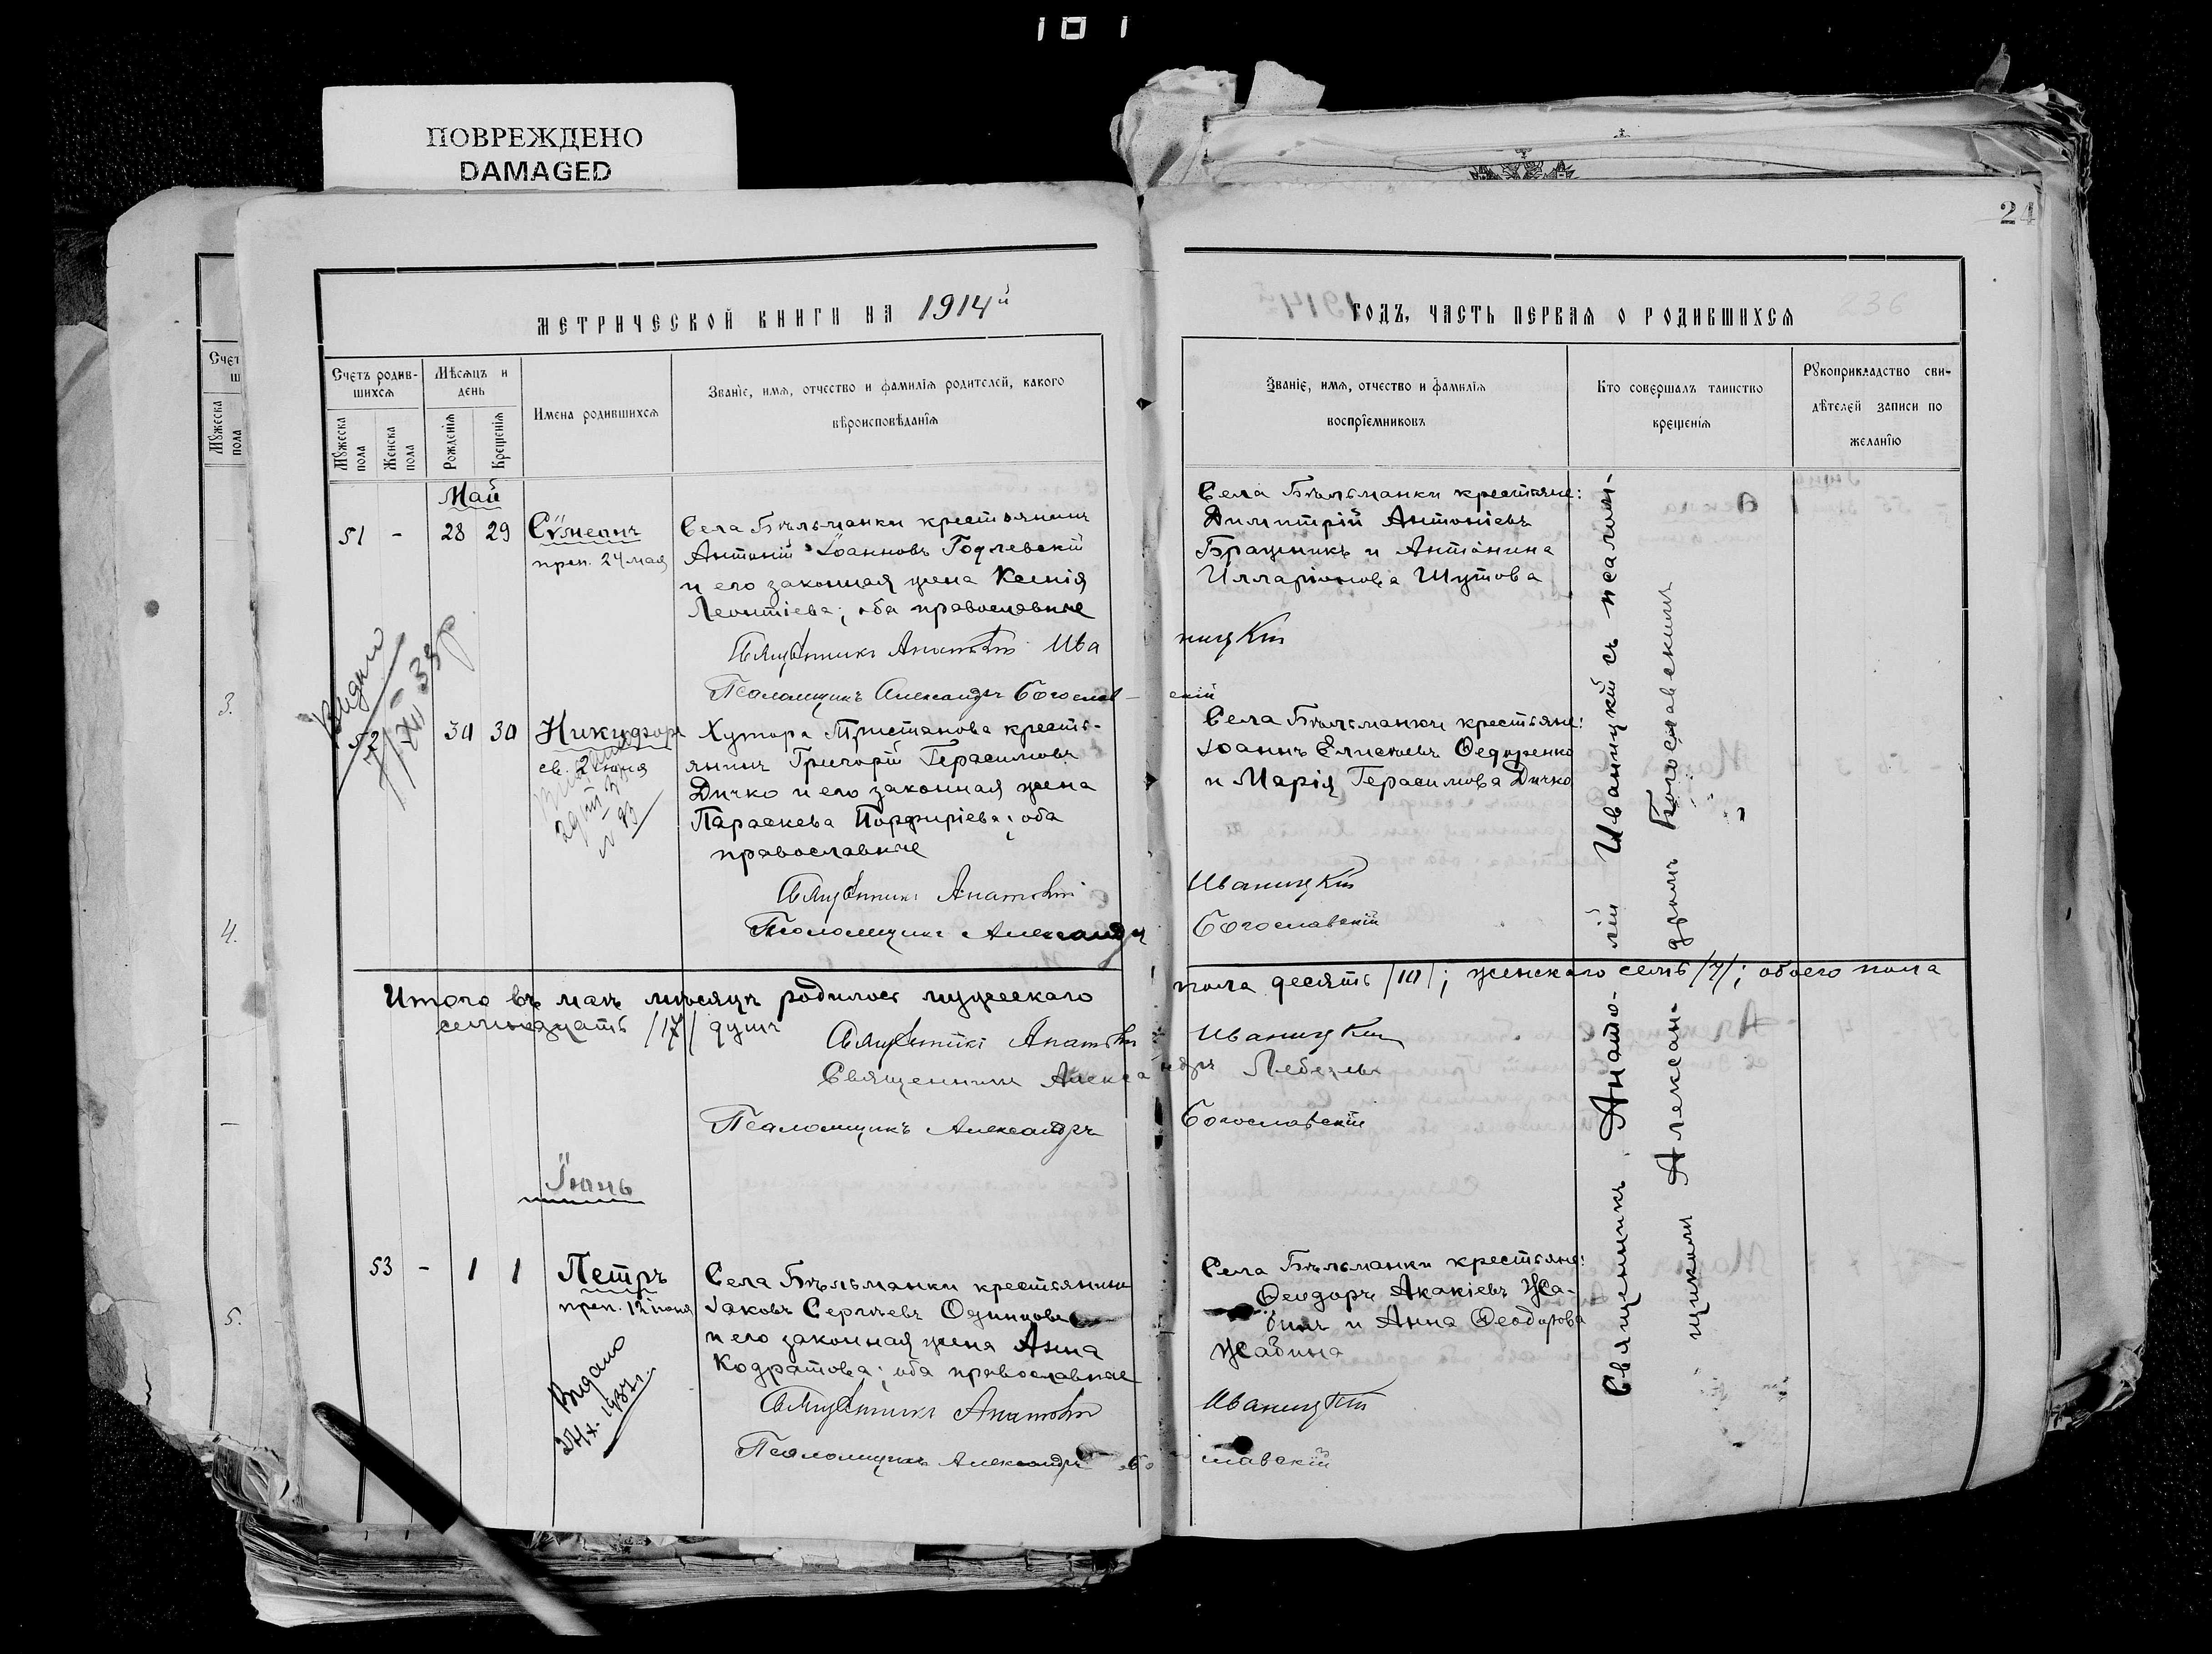 101
ПОВРЕЖДЕНО
DAMAGED
24
МЕТРИЧЕСКОЙ КНИГИ НА 1914й
ГОДЪ, ЧАСТЬ ПЕРВАЯ О РОДИВШИХСЯ
Счетъ родив-
шихся
Мужеска пола
Женска пола
Мѣсяцъ и
день
Рожденія
Крещенія
Имена родившихся
Званіе, имя, отчество и фамилія родителей, какого
вѣроисповѣданія
Званіе, имя, отчество и фамилія
воспріемниковъ
Кто совершалъ таинство
крещенія
Рукоприкладство сви-
дѣтелей записи по
желанію
Май
51 - 28 29 Сѵмеонъ
преп. 24 мая
Села Бѣльманки крестьянинъ
Антоній Іоанновъ Годлевскій
и его законная жена Ксенія
Леонтіева; оба православные
Села Бѣльманки крестьяне:
Димитрій Антоніевъ
Бращникъ и Антонина
Илларіонова Шутова
Священникъ Анатолій Иваницкій
Псаломщикъ Александръ Богославскій
52 30 30 Никифоръ
св. 2 іюня
Хутора Тристанова кресть-
янинъ Григорій Герасимовъ
Дичко и его законная жена
Параскева Порфиріева; оба
православные
Села Бѣльманки крестьяне:
Іоаннъ Елисѣевъ Ѳедоренко
и Марія Герасимова Дичко
Священникъ Анатолій Иваницкій
Псаломщикъ Александръ Богославскій
Итого въ маѣ мѣсяцѣ родилось мужескаго пола десять /10/; женскаго семь /7/; обоего пола
семнадцать /17/ душъ
Священникъ Анатолій Иваницкій
Священникъ Александръ Лебедевъ
Псаломщикъ Александръ Богославскій
Іюнь
53 - 1 1 Петръ
преп. 12 іюня
Выдано
24/X-1937г.
Села Бѣльманки крестьянинъ
Іаковъ Сергѣевъ Одинцовъ
и его законная жена Анна
Кодратова; оба православные
Села Бѣльманки крестьяне:
Ѳеодоръ Акакіевъ Жа-
бинъ и Анна Ѳеодорова
Жабина
Священникъ Анатолій Иваницкій
Псаломщикъ Александръ Богославскій
Священникъ Анатолій Иваницкій съ псалом-
щикомъ Александромъ Богославскимъ